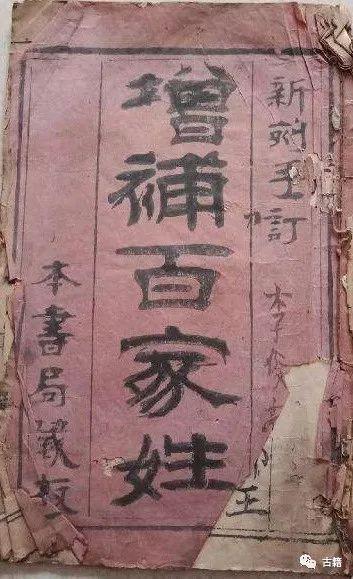 新刻手訂
增補百家姓
本書局藏板
古籍